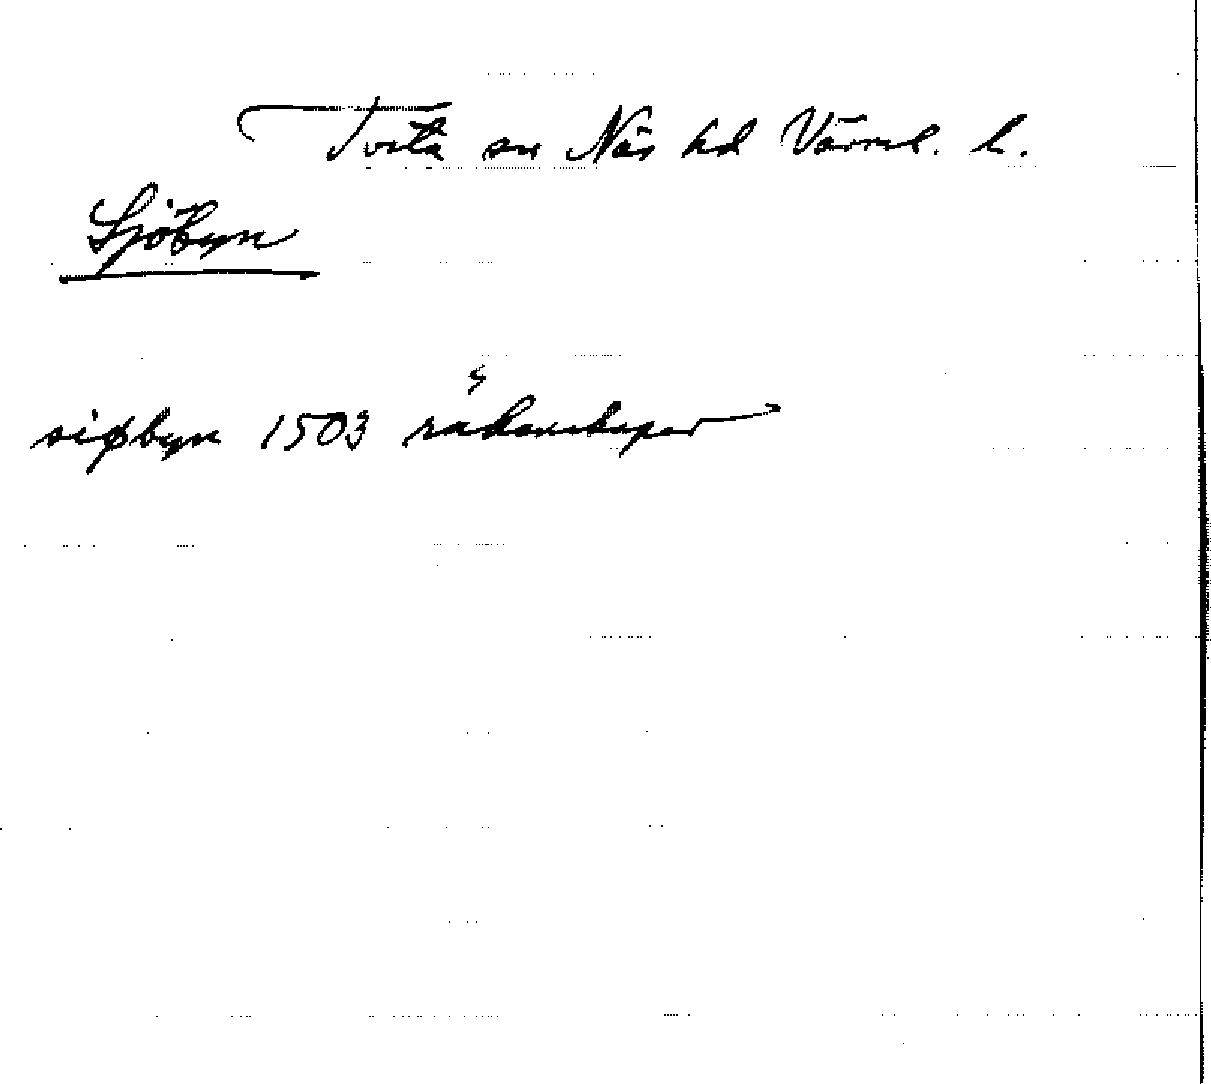 Tveta sn Näs hd Värml. l.
Sjöbyn
siøbyn 1503 räkenskaper